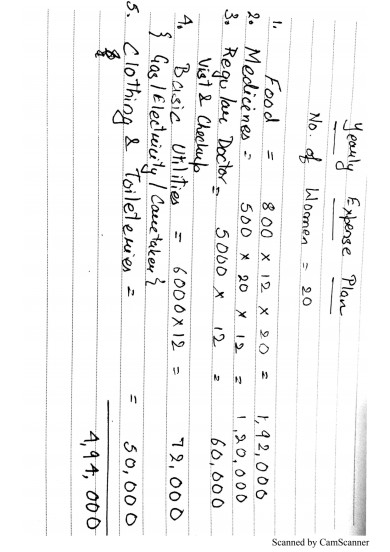 Yearly Expense Plan
No. of Women = 20
1. Food = 800 × 12 × 20 = 1,92,000
2. Medicenes = 500 × 20 × 12 = 1,20,000
3. Regular Doctor = 5000 × 12 = 60,000
Vist & Checkup
4. Basic Utilities = 6000×12 = 72,000
{ Gas/Electricity/Caretaker}
5. Clothing & Toileteries = = 50,000
4,94,000
Scanned by CamScanner